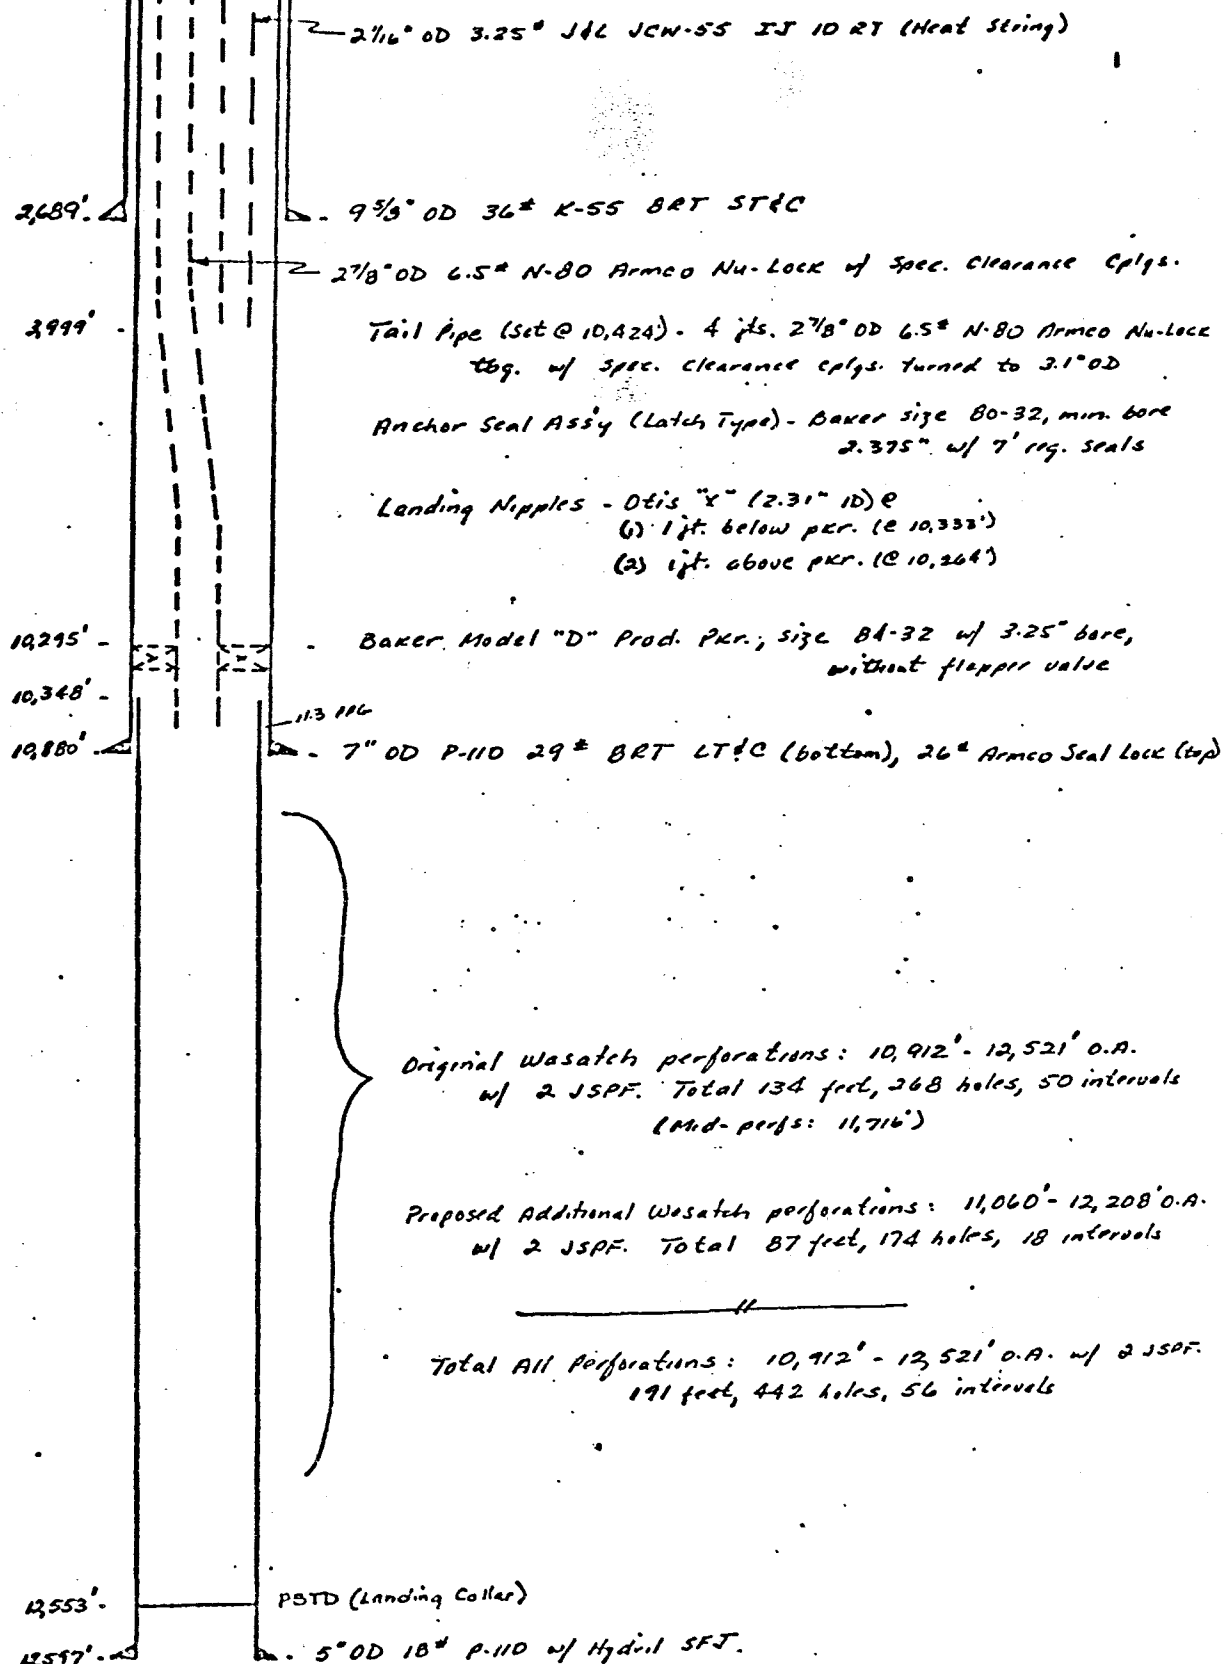 2 1/16" OD 3.25# J&L JCW-55 IJ 10 RT (Heat String)
2,689'. - 9 5/8" OD 36# K-55 8RT ST&C
2 7/8" OD 6.5# N-80 Armco Nu-Lock w/ Spec. Clearance Cplgs.
3,999' -
Tail Pipe (Set @ 10,424') - 4 jts. 2 7/8" OD 6.5# N-80 Armco Nu-Lock
tbg. w/ Spec. Clearance cplgs. turned to 3.1" OD
Anchor Seal Ass'y (Latch Type) - Baker size 80-32, min. bore
2.375" w/ 7' reg. seals
Landing Nipples - Otis "X" (2.31" ID) @
(1) 1 jt. below pkr. (@ 10,333')
(2) 1 jt. above pkr. (@ 10,264')
10,295' - - Baker Model "D" Prod. Pkr., size 84-32 w/ 3.25" bore,
without flapper valve
10,348' -
11.3 PPG
10,880' - 7" OD P-110 29# 8RT LT&C (bottom), 26# Armco Seal Lock (top)
Original Wasatch perforations: 10,912' - 12,521' O.A.
w/ 2 JSPF. Total 134 feet, 268 holes, 50 intervals
(Mid-perfs: 11,716')
Proposed Additional Wasatch perforations: 11,060' - 12,208' O.A.
w/ 2 JSPF. Total 87 feet, 174 holes, 18 intervals
Total All Perforations: 10,912' - 12,521' O.A. w/ 2 JSPF.
191 feet, 442 holes, 56 intervals
12,553'. PBTD (Landing Collar)
12,597'. - 5" OD 18# P-110 w/ Hydril SFJ.